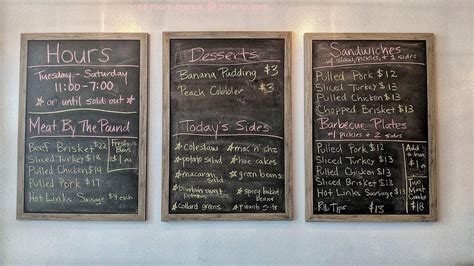 Hours
Tuesday - Saturday
11:00 - 7:00
☆ or until sold out ☆
Meat By The Pound
Beef Brisket $22
Sliced Turkey $14
Pulled Chicken $14
Pulled Pork $16
Hot Links Sausage $4 each
Desserts
Banana Pudding $3
Peach Cobbler $3
Today's Sides
☆ coleslaw
☆ potato salad
☆ macaroni salad
☆ collard greens
☆ mac 'n' chz
☆ hoe cakes
☆ green beans
☆ spicy baked beans
Sandwiches
w/ slaw, pickles, + 2 sides
Pulled Pork $12
Sliced Turkey $13
Pulled Chicken $13
Chopped Brisket $13
Barbecue Plates
w/ pickles + 2 sides
Pulled Pork $12
Sliced Turkey $13
Pulled Chicken $13
Sliced Brisket $13
Hot Links Sausage $13
Rib Tips $13
Add a
Two Meat Combo